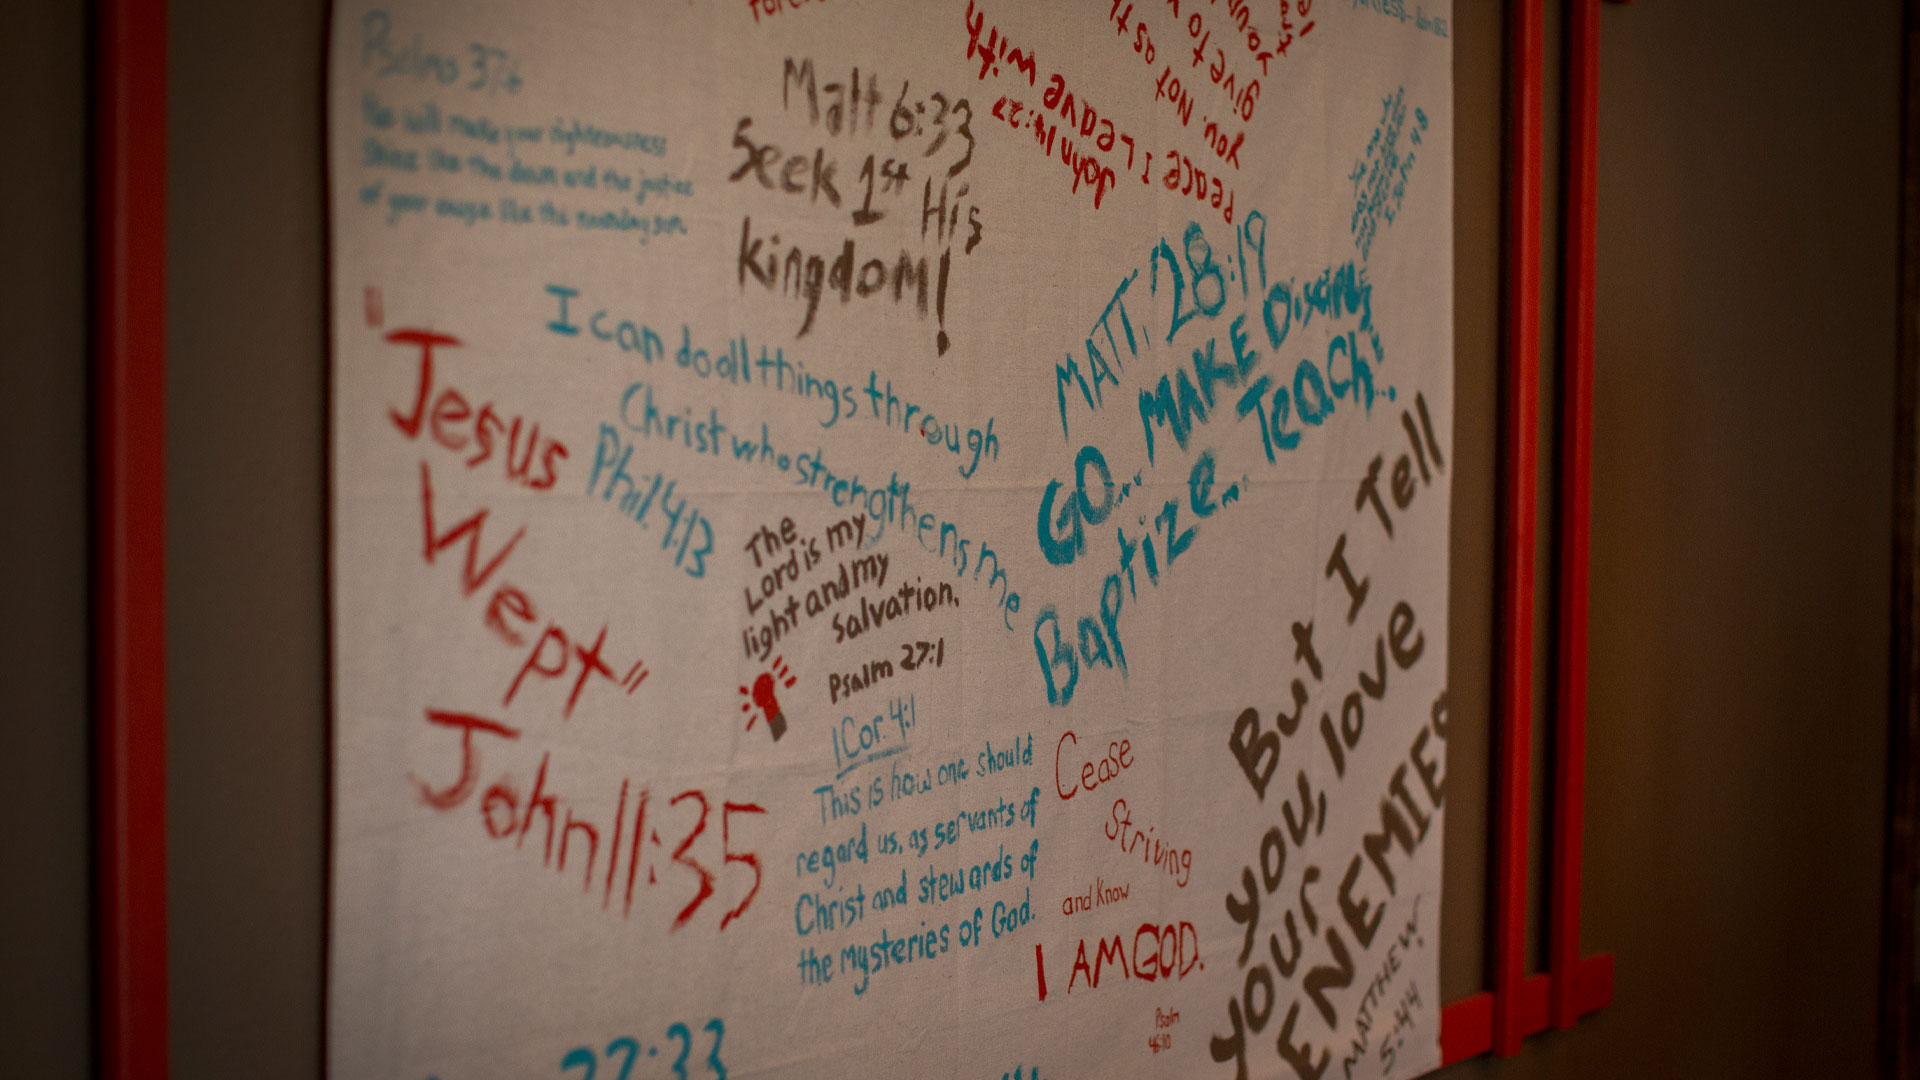 Psalms 37:6
He will make your righteousness
Shine like the dawn and the justice
of your cause like the noonday sun.
Matt 6:33
Seek 1st His
kingdom!
John 14:27
Peace I Leave with
you. Not as th
give to
I can do all things through
Christ who strengthens me
Phil. 4:13
"Jesus
Wept"
John 11:35
MATT. 28:19
GO... MAKE Disciples
Baptize... Teach...
The
Lord is my
light and my
Salvation.
Psalm 27:1
1 Cor. 4:1
This is how one should
regard us, as servants of
Christ and stewards of
the mysteries of God.
Cease
Striving
and Know
I AM GOD.
Psalm
46:10
But I Tell
you, love
your
ENEMIES
MATTHEW
5:44